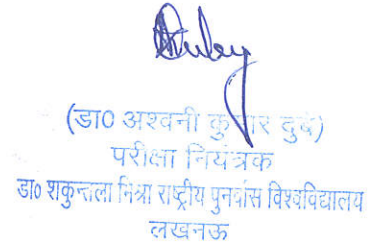 (डा0 अश्वनी कुमार दुबे)
परीक्षा नियंत्रक
डा० शकुन्तला मिश्रा राष्ट्रीय पुनर्वास विश्वविद्यालय
लखनऊ